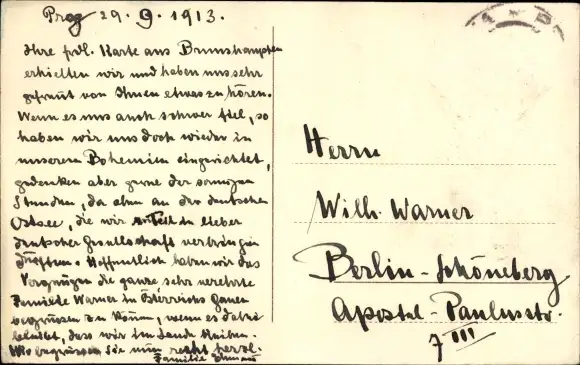 Prag 29.9.1913.
Ihre frdl. Karte aus Brunshaupten
erhielten wir und haben uns sehr
gefreut von Ihnen etwas zu hören.
Wenn es uns auch schwer fiel, so
haben wir uns doch wieder in
unserem Bohemien eingerichtet,
gedenken aber gerne der sonnigen
Stunden, da oben an der deutschen
Ostsee, die wir in lieber
deutscher Gesellschaft verbringen
durften. Hoffentlich haben wir das
Vergnügen die ganze sehr verehrte
Familie Warner in Österreichs Gauen
begrüssen zu können, wenn es dabei
bleibt, dass wir im Lande bleiben.
Wir begrüssen Sie nun recht herzl.
Familie
Herrn
Wilh. Warner
Berlin-Schöneberg
Apostel-Paulusstr.
7 III